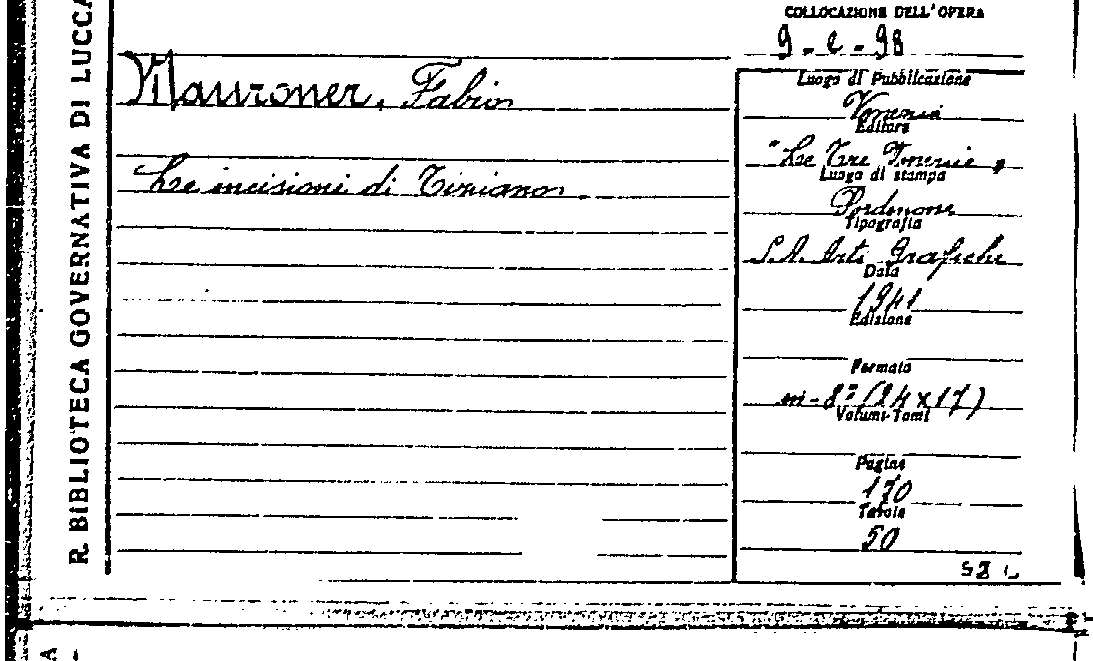 R. BIBLIOTECA GOVERNATIVA DI LUCCA
COLLOCAZIONE DELL'OPERA
9 - e - 98
Mauroner, Fabio
Le incisioni di Tiziano
Luogo di Pubblicazione
Venezia
Editore
"Le Tre Venezie"
Luogo di stampa
Pordenone
Tipografia
S.A. Arti Grafiche
Data
1941
Edizione
Formato
in-8° (24x17)
Volumi-Tomi
Pagine
170
Tavole
50